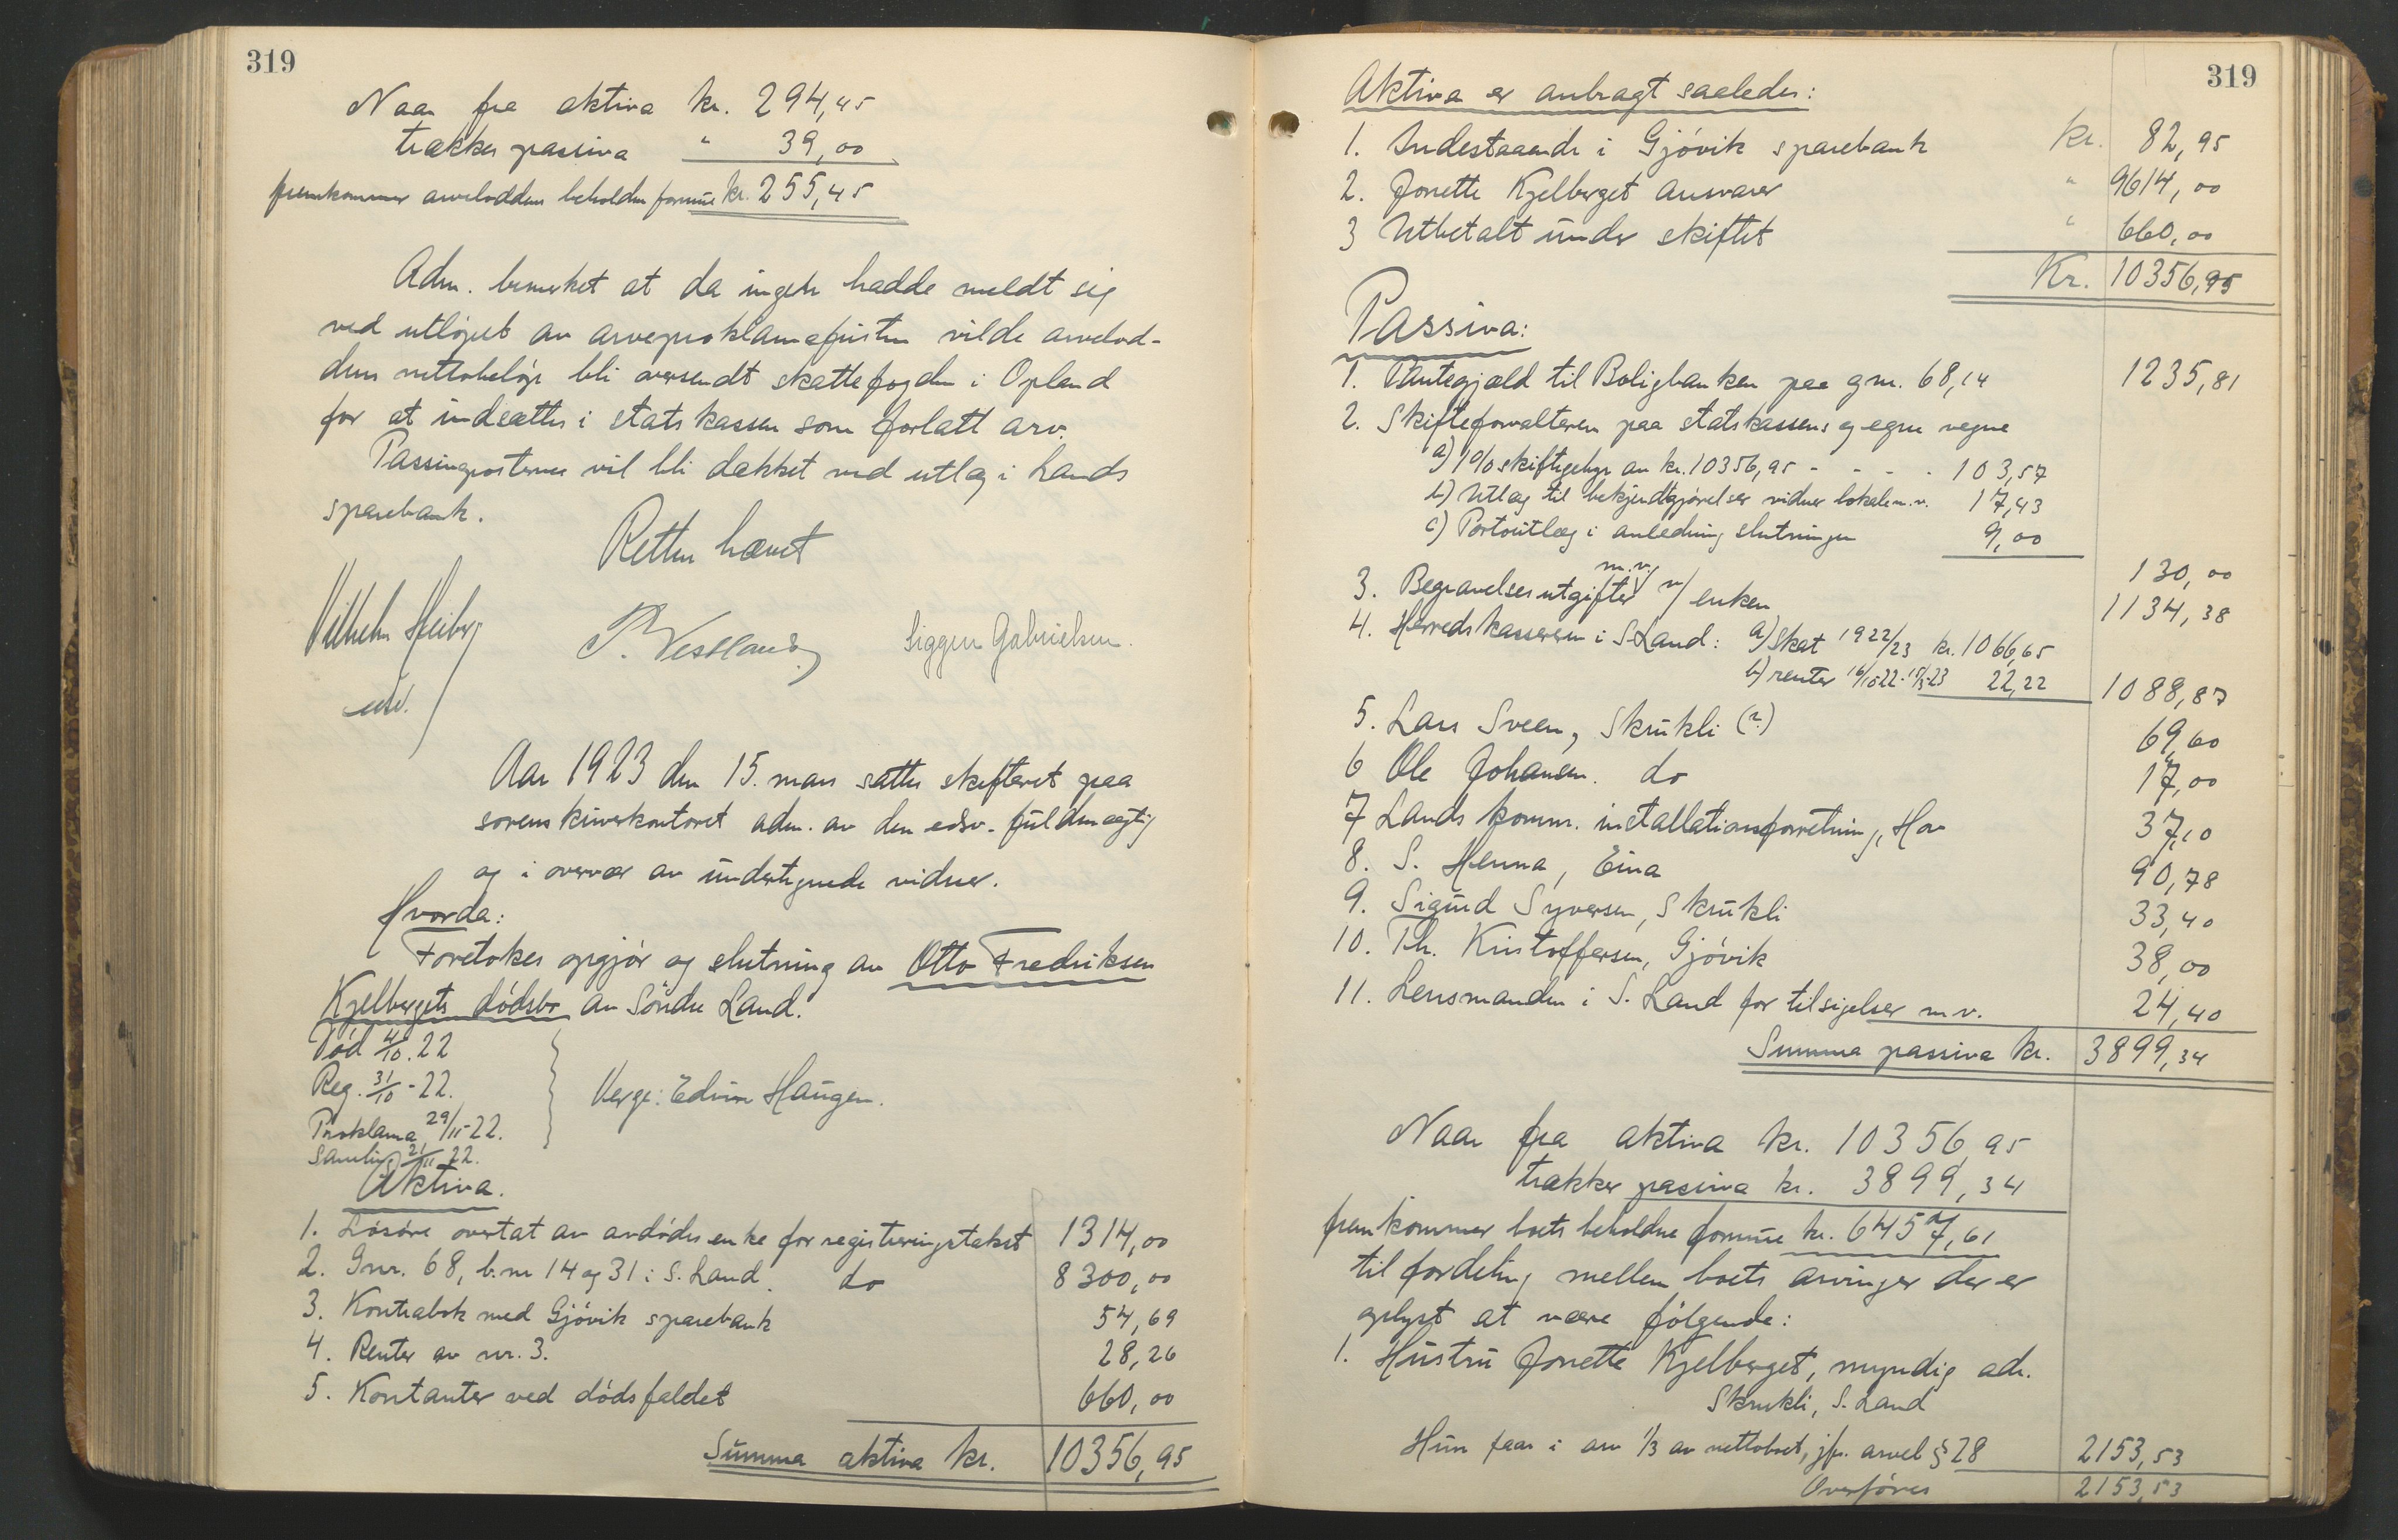 319
Naar fra aktiva kr. 294,45
trækkes passiva " 39,00
fremkommer arveloddens beholdne formue kr. 255,45
Adm. bemerket at da ingen hadde meldt sig
ved utløpet av arveproklamafristen vilde arvelod-
dens nettobeløp bli oversendt skattefogden i Opland
for at indsættes i statskassen som forlatt arv.
Passivaposterne vil bli dækket ved utlæg i Lands
sparebank.
Retten hævet
Vilhelm Heiberg
edsv.
P. Vestland
Siggen Gabrielsen.
Aar 1923 den 15. mars sattes skifteret paa
sorenskriverkontoret adm. av den edsv. fuldmægtig
og i overvær av undertegnede vidner.
Hvorda:
Foretokes opgjør og slutning av Otto Fredriksen
Kjelbergets dødsbo av Søndre Land.
Død 4/10.22
Reg. 31/10-22.
Proklama 29/11-22.
Samling 21/11 22.
Verge: Edvin Haugen.
Aktiva.
1. Løsøre overtat av avdødes enke for registreringstakst 1314,00
2. Gnr. 68, b.nr 14 og 31 i S. Land. do 8300,00
3. Kontrabok med Gjøvik sparebank 54,69
4. Renter av nr. 3. 28,26
5. Kontanter ved dødsfaldet 660,00
Summa aktiva kr. 10356,95
319
Aktiva er anbragt saaledes:
1. Indestaaende i Gjøvik sparebank kr. 82,95
2. Jonette Kjelberget ansvarer " 9614,00
3 Utbetalt under skiftet " 660,00
Kr. 10356,95
Passiva:
1. Pantegjæld til Boligbanken paa gnr. 68,14 1235,81
2. Skifteforvalteren paa statskassens og egne vegne
a) 1% skiftegebyr av kr. 10356,95 - - - . 103,57
b) Utlæg til bekjendtgjørelser vidner lokale m.v. 17,43
c) Portoutlæg i anledning slutningen 9,00
130,00
3. Begravelsesutgifter m.v. v/ enken 1134,38
4. Herredskassereren i S. Land: a) Skat 1922/23 kr. 1066,65
b) renter 16/10 22-15/3-23 22,22 1088,87
5. Lars Sveen, Skrukli (?) 69,60
6 Ole Johansen. do 17,00
7 Lands komm. installationsforretning, Hov 37,10
8. S. Henna, Eina 90,78
9. Sigurd Syversen, Skrukli 33,40
10. Th. Kristoffersen, Gjøvik 38,00
11. Lensmanden i S. Land for tilsigelser m.v. 24,40
Summa passiva kr. 3899,34
Naar fra aktiva kr. 10356,95
trækkes passiva kr. 3899,34
fremkommer boets beholdne formue kr. 6457,61
til fordeling mellem boets arvinger der er
oplyst at være følgende:
1. Hustru Jonette Kjelberget, myndig adr.
Skrukli, S. Land
Hun faar i arv 1/3 av nettoboet, jfr. arvel § 28 2153,53
Overføres 2153,53